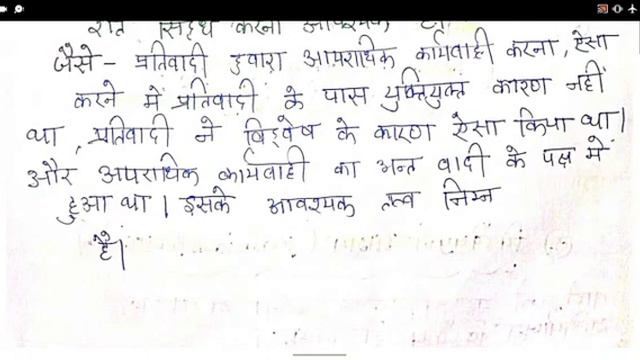 शर्त सिद्ध करना आवश्यक है।
जैसे - प्रतिवादी द्वारा आपराधिक कार्यवाही करना, ऐसा
करने में प्रतिवादी के पास युक्तियुक्त कारण नहीं
था, प्रतिवादी ने विद्वेष के कारण ऐसा किया था।
और अपराधिक कार्यवाही का अन्त वादी के पक्ष में
हुआ था। इसके आवश्यक तत्व निम्न
है।